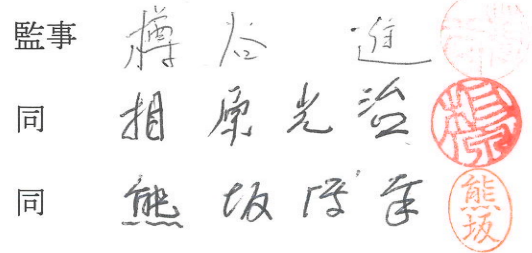 監事 樽谷 進
同 相原光治 相原
同 熊坂 年 熊坂